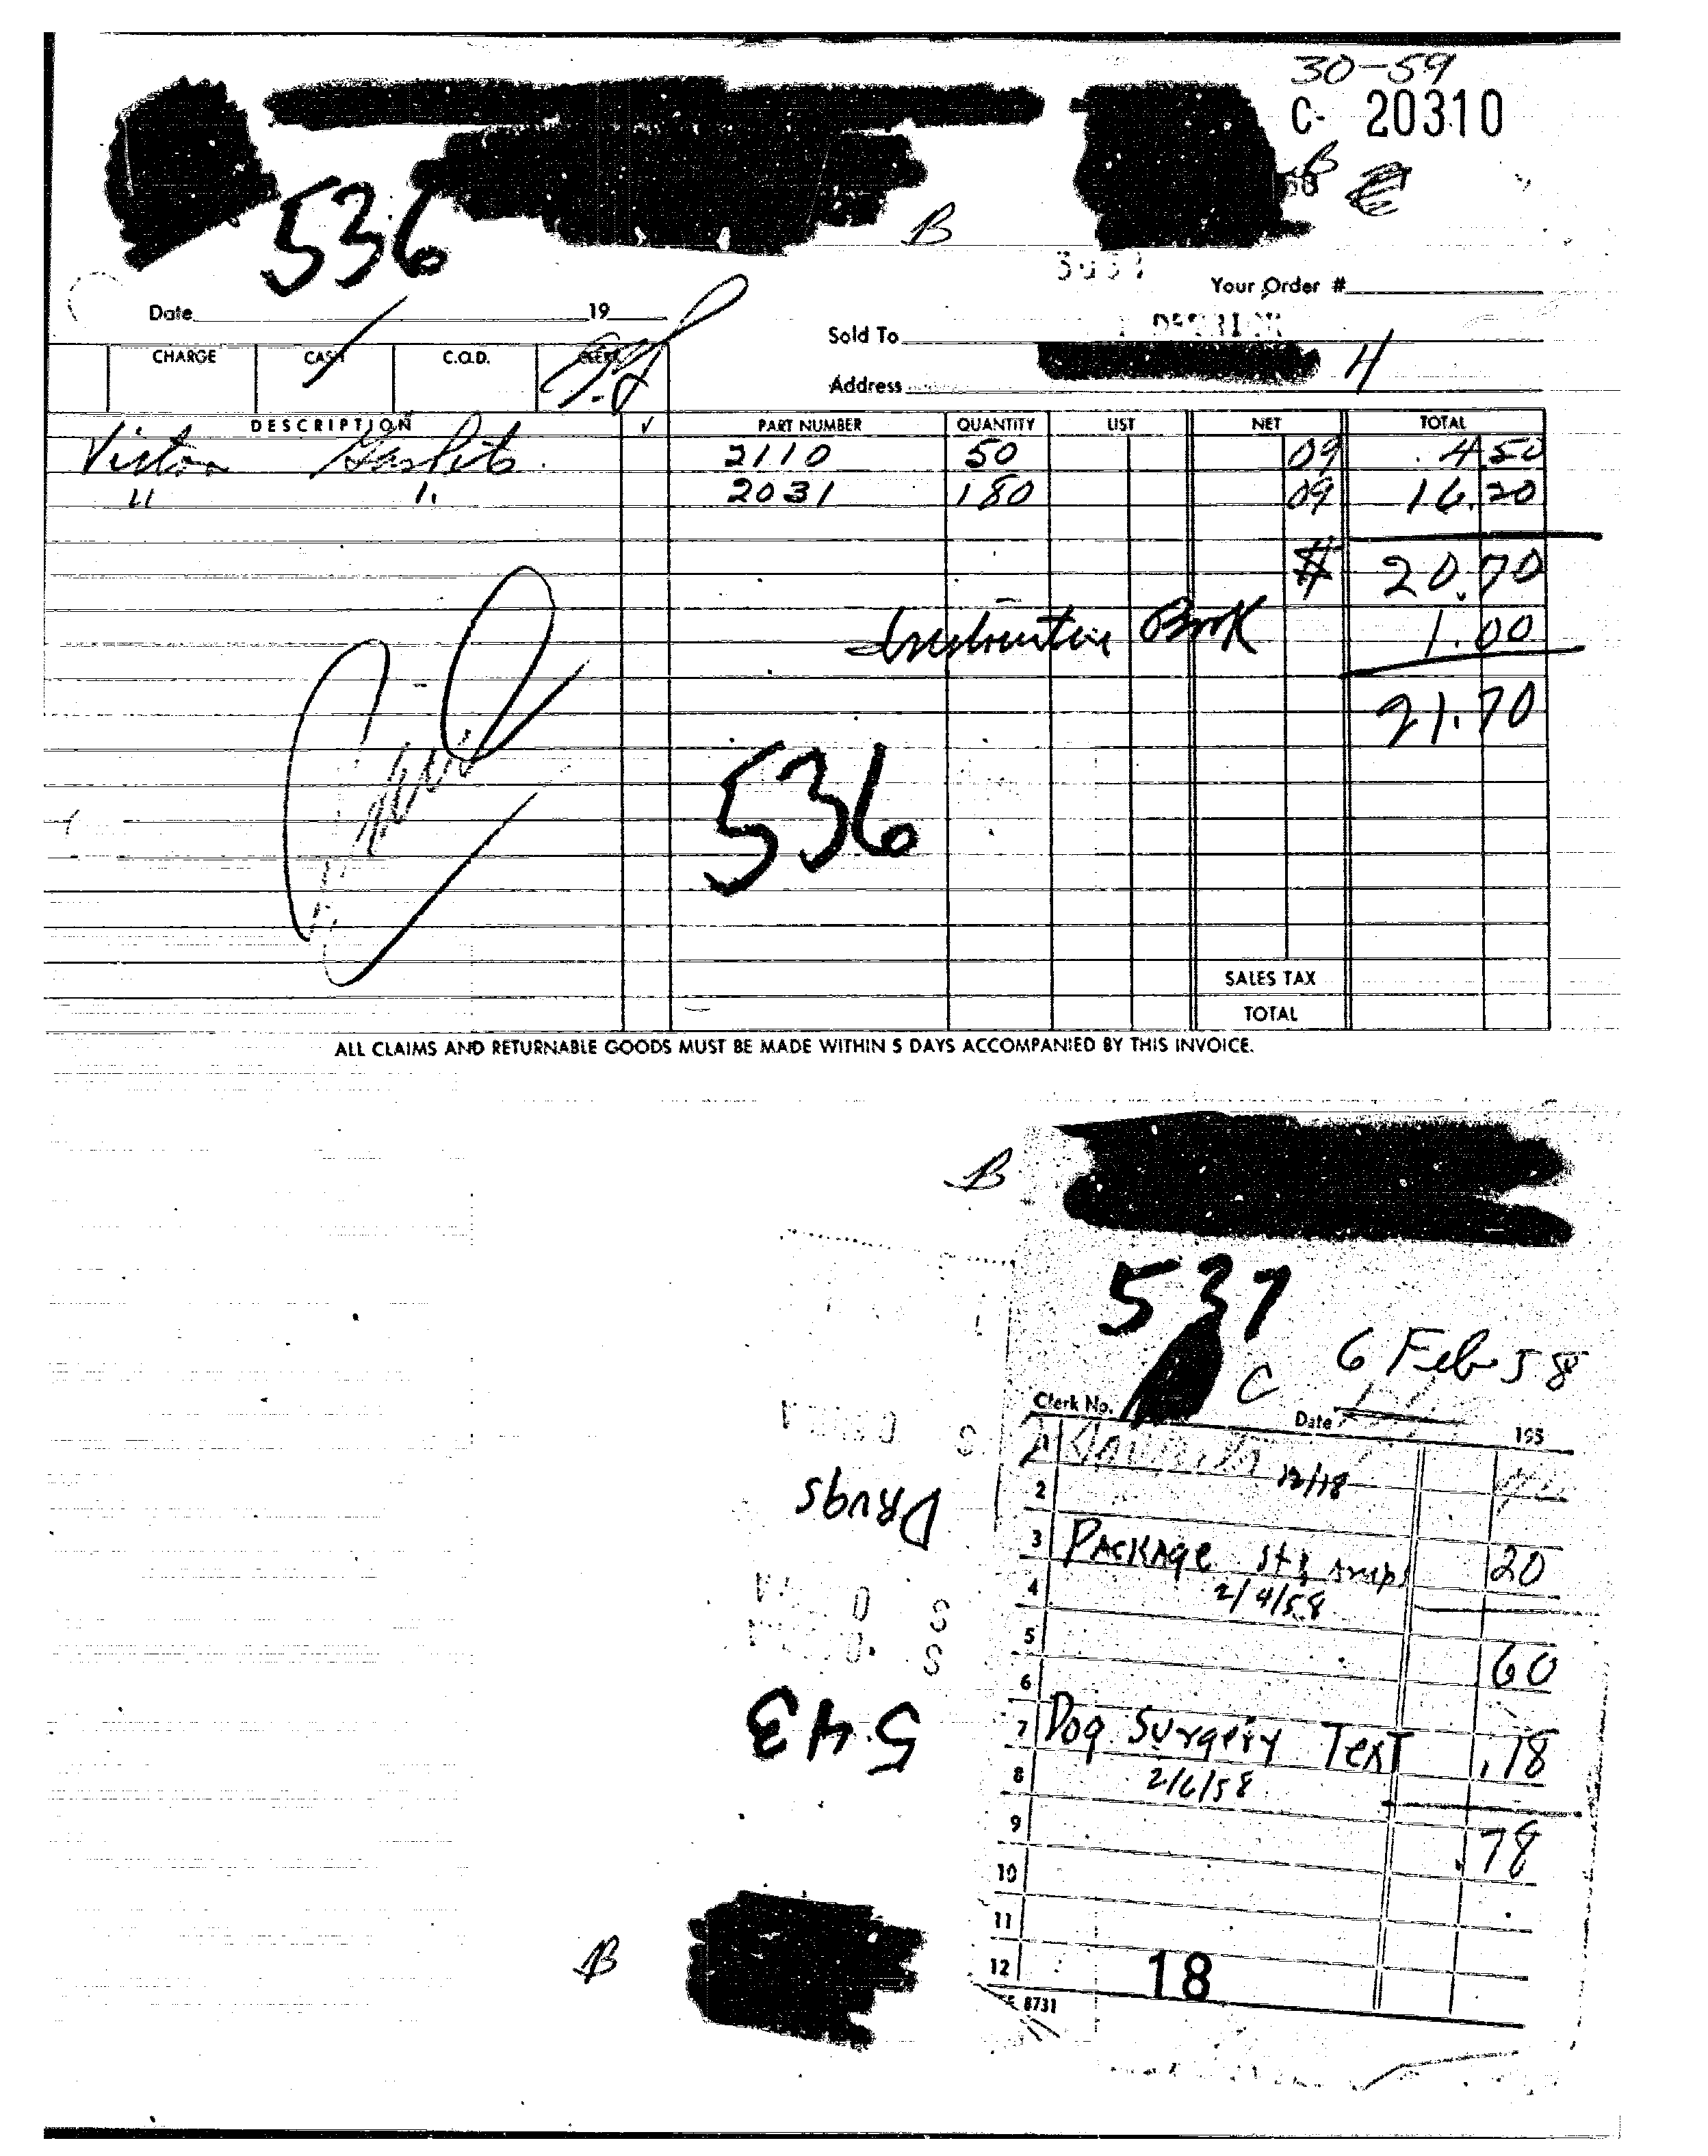 30-59
C- 20310
B
536
B
Your Order #
Date 19
Sold To
Address 4
CHARGE CASH C.O.D. CLERK
DESCRIPTION √ PART NUMBER QUANTITY LIST NET TOTAL
Victor Gaskets 2110 50 09 4.50
" " 2031 180 09 16.20
$ 20.70
Instruction Book 1.00
21.70
536
SALES TAX
TOTAL
ALL CLAIMS AND RETURNABLE GOODS MUST BE MADE WITHIN 5 DAYS ACCOMPANIED BY THIS INVOICE.
B
537
C 6 Feb 58
Clerk No. Date 195
1
12/18
2
3 Package 20
4 2/4/58
5
6 60
7 Dog Surgery Text .18
8 2/6/58
9 .78
10
11
12
18
8731
Drugs
543
B